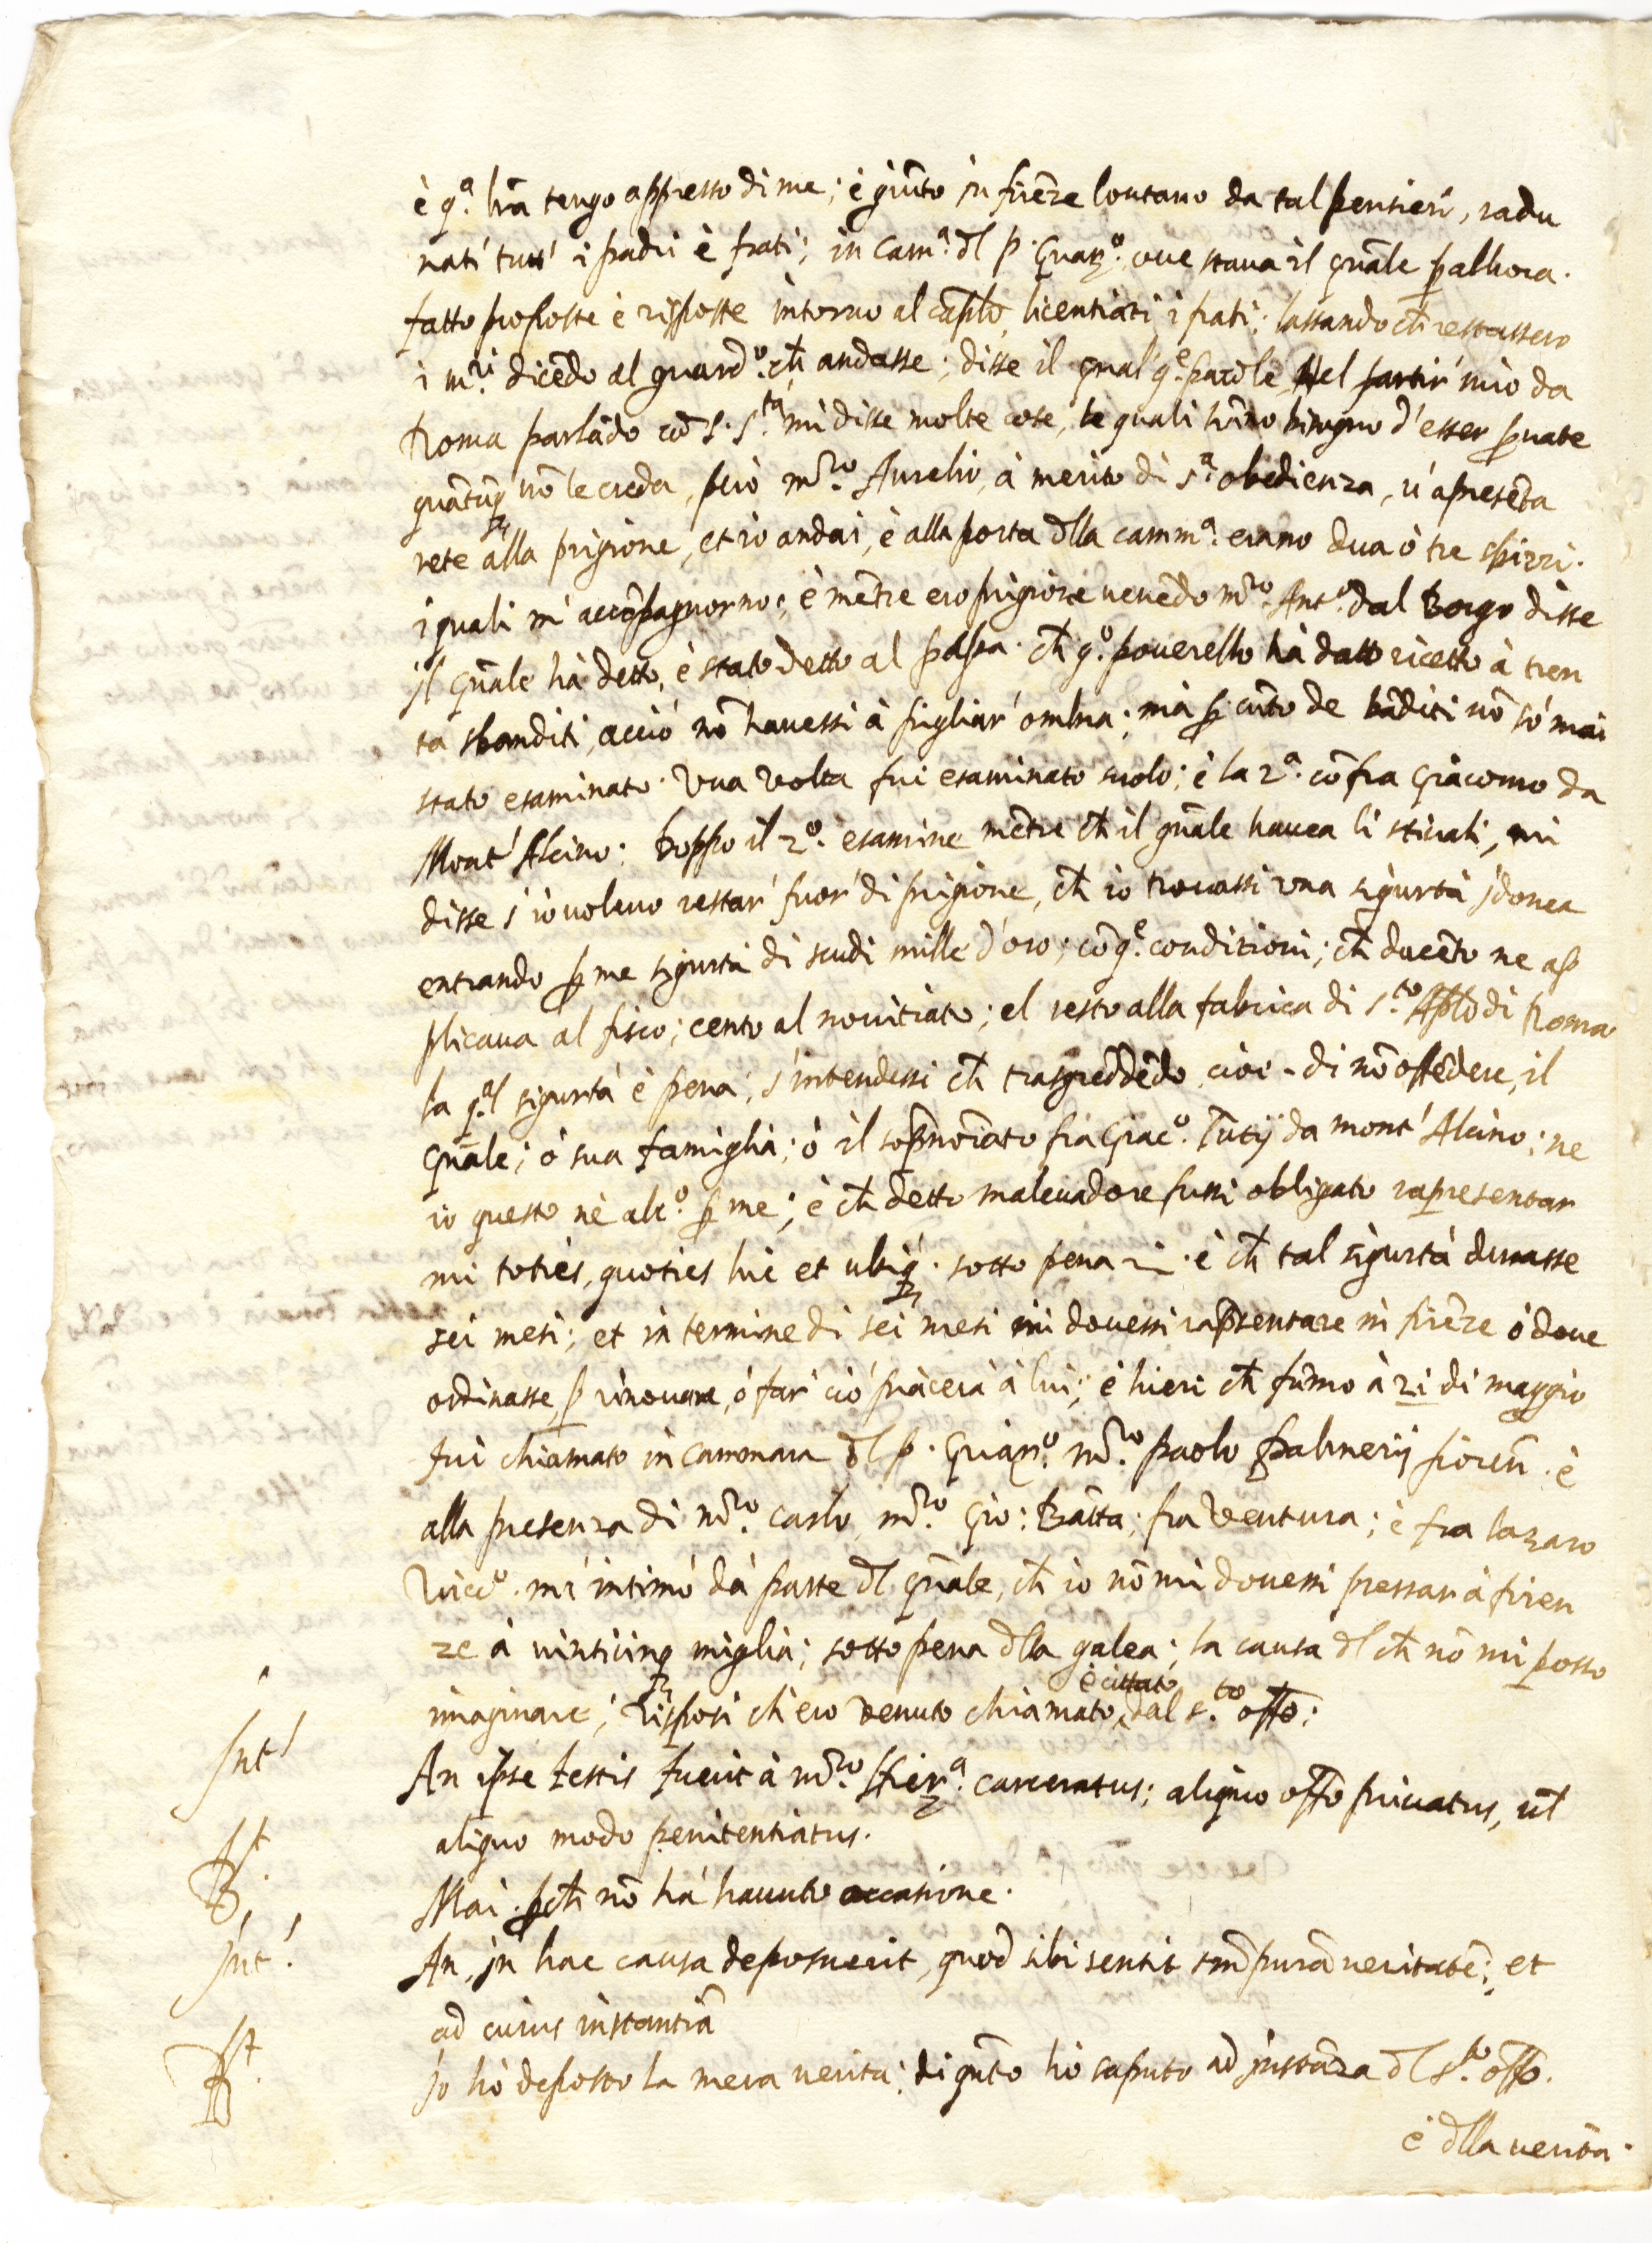 è q.ª lrã tengo appresso di me; è giũto in firẽze lontano da tal pensieri, radu
nati tutt' i padri è frati; in cam.ª dl p. Guar.º, oue staua il gñale p allhora.
fatto proposte è risposte intorno al caplo, licentiati i frati; lassando ch̃ restassero
i m.ri dicẽdo al guard.º ch̃ andasse; disse il gnal' q.e parole, Nel partir' mio da
Roma parlãdo cõ S. S.tà mi disse molte cose, le quali hãno bisogno d'esser puate
quãtũq nõ le creda, però m̃ro Aurelio, à merito di s.ª obedienza, u' apresẽta
rete alla prigione, et io andai, è alla porta dlla camm.ª erano dua ò tre sbirri.
i quali m' accõpagnorno; è mẽtre ero prigione uenẽdo m̃ro Ant.º dal Borgo disse
il gñale hà detto, è stato detto al papa. ch̃ q.º pouerello hà dato ricetto à tren
ta sbanditi, acciò nõ hauessi à pigliar' ombra; mà p cũto de bãditi nõ sò mai
stato esaminato. Vna volta fui esaminato suolo; è la 2.ª cõ fra Giacomo da
Mont' Alcino: Doppo il 2.º esamine mẽtre ch̃ il gñale hauea li stiuali, mi
disse s' io uoleuo restar' fuor' di prigione, ch̃ io trouassi vna sigurtà idonea
entrando p me sigurtà di scudi mille d'oro; cõ q.e conditioni; ch̃ ducẽto ne ap
plicaua al fisco; cento al nouitiato; el resto alla fabrica di s.to Aplo di Roma
la q.al sigurtà è pena, s'intendessi ch̃ trasgredẽdo, cioè - di nõ offẽdere, il
Gñale; ò sua famiglia; ò il sopñoiato fra Giac.º Tutij da mont' Alcino: ne
io questo nè alc.º p me; è ch̃ detto maleuadore fussi obligato rapresentar
mi toties, quoties hic et ubiq. sotto pena è ch̃ tal sigurtà durasse
sei mesi; et in termine di sei mesi mi douessi rapsentare in firẽze ò doue
ordinasse, p rinouare, ò far' ciò piacerà à lui; è hieri ch̃ fũmo à 21 di maggio
fui chiamato in cammara dl p. Guar.º m̃ro paolo palmerij fiorẽn. è
alla presenza di m̃ro Carlo, m̃ro Gio: Batta; fra Ventura; è fra lazaro
mi intimò dà parte dl gñale, ch̃ io nõ mi douessi pressar à firen
ze à uinticinq miglia; sotto pena dlla galea; la causa dl ch̃ nõ mi posso
imaginare; Risposi ch' ero venuto chiamato, è cittato dal s.to offo:
Int' An ipse testis fuerit à m̃ro carceratus; aliquo offo priuatus, ul
aliquo modo penitentiatus.
Rt. Mai. pch̃ nõ hà hauuto occasione.
Int! An, in hac causa deposuerit, quod sibi sentit smd purã ueritatẽ; et
ad cuius instantiã
Rt. Io hò deposto la mera uerità; di qũto hò saputo ad instãza dl s.to offo.
è dlla uerità.